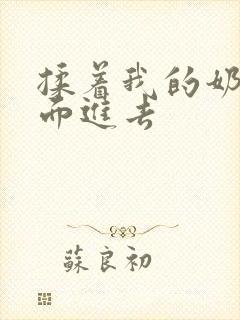 揉着我的奶
而進去
蘇良初